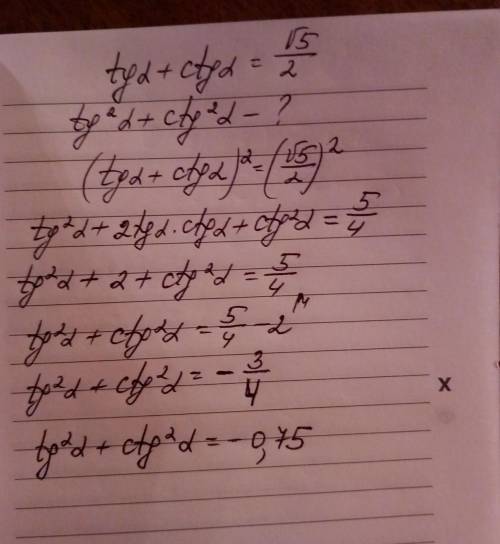 tgα + ctgα = √5/2
tg²α + ctg²α - ?
(tgα + ctgα)² = (√5/2)²
tg²α + 2tgα · ctgα + ctg²α = 5/4
tg²α + 2 + ctg²α = 5/4
tg²α + ctg²α = 5/4 - 2
tg²α + ctg²α = - 3/4
tg²α + ctg²α = - 0,75
x